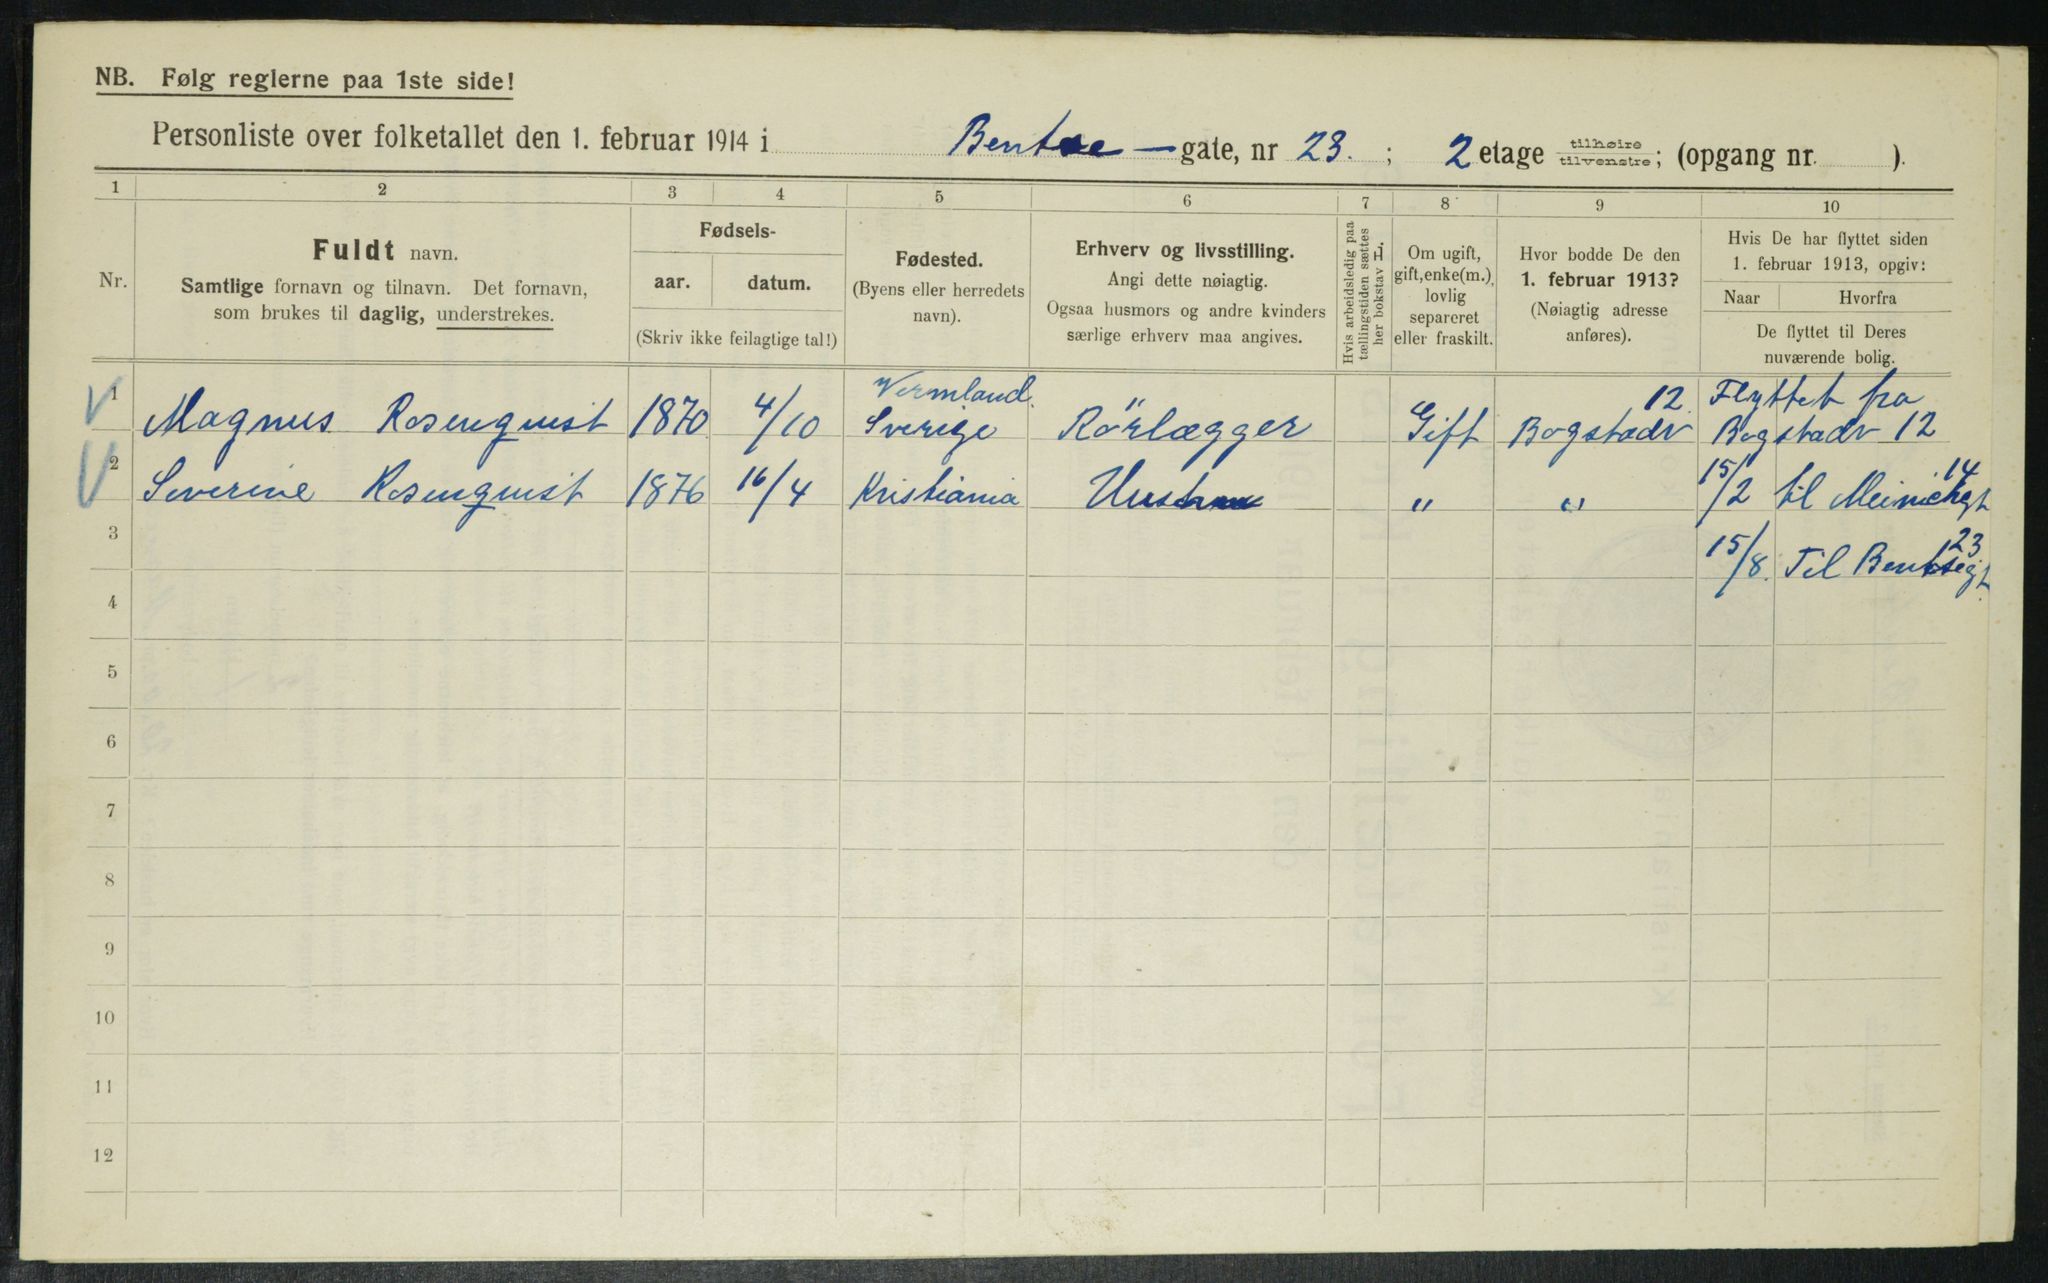 NB. Følg reglerne paa 1ste side!
Personliste over folketallet den 1. februar 1914 i Bentse — gate, nr 23. ; 2 etage tilhøire tilvenstre; (opgang nr. ).
1 2 3 4 5 6 7 8 9 10
Nr.
Fuldt navn.
Samtlige fornavn og tilnavn. Det fornavn,
som brukes til daglig, understrekes.
Fødsels-
aar. datum.
(Skriv ikke feilagtige tal!)
Fødested.
(Byens eller herredets
navn).
Erhverv og livsstilling.
Angi dette nøiagtig.
Ogsaa husmors og andre kvinders
særlige erhverv maa angives.
Hvis arbeidsledig paa
tællingstiden sættes
her bokstav L.
Om ugift,
gift, enke(m.),
lovlig
separeret
eller fraskilt.
Hvor bodde De den
1. februar 1913?
(Nøiagtig adresse
anføres).
Hvis De har flyttet siden
1. februar 1913, opgiv:
Naar Hvorfra
De flyttet til Deres
nuværende bolig.
1 Magnus Rosenquist 1870 4/10 Vermland. Sverige Rörlægger Gift Bogstadv 12 Flyttet fra Bogstadv 12
2 Severine Rosenquist 1876 16/4 Kristiania „ „ 15/2 til 14
3 15/8. Til Bentsegt 23
4
5
6
7
8
9
10
11
12